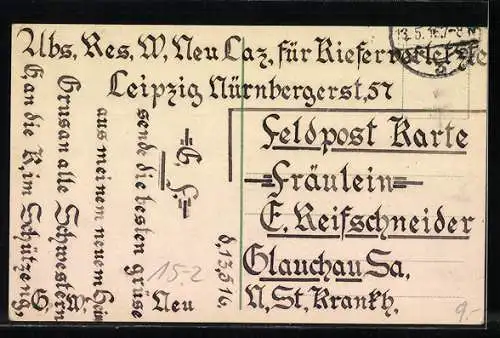 13.5.16.7-8N
Abs. Res. W. Neu Laz. für Kieferverletzte
Leipzig Nürnbergerst. 57
Feldpost Karte
Fräulein
E. Reifschneider
Glauchau Sa.
N. St. Krankh.
d. 13.5.16.
sende die besten grüse
aus meinem neuem Heim
Grus an alle Schwestern
G. W. Neu
15-2
9.-